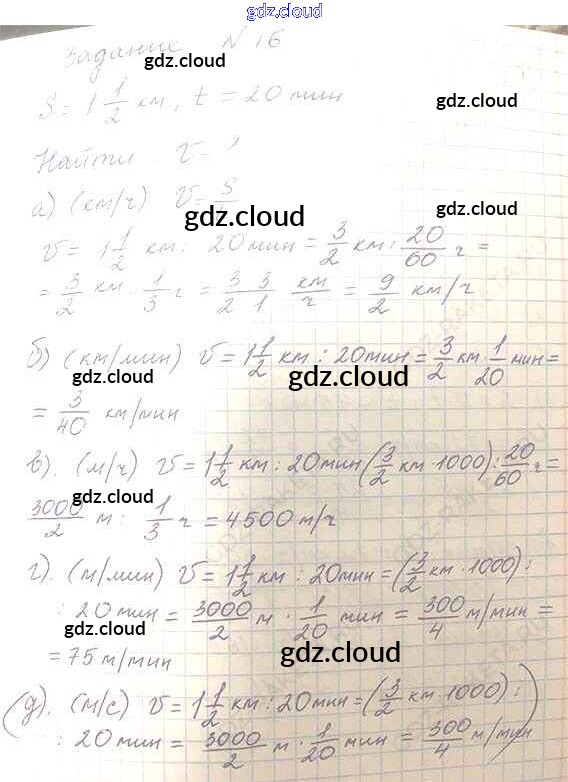 gdz.cloud
Задание N 16
gdz.cloud
S = 1 1/2 км, t = 20 мин
gdz.cloud
Найти V = ?
а) (км/ч) V = S
gdz.cloud
V = 1 1/2 км : 20 мин = 3/2 км : 20/60 ч =
= 3/2 км · 1/3 ч = 3/2 3/1 км/ч = 9/2 км/ч
gdz.cloud
б) (км/мин) V = 1 1/2 км : 20 мин = 3/2 км · 1/20 мин =
gdz.cloud gdz.cloud
= 3/40 км/мин
gdz.cloud
в). (м/ч) V = 1 1/2 км : 20 мин (3/2 км · 1000) : 20/60 ч =
gdz.cloud
3000/2 м : 1/3 ч = 4500 м/ч
г). (м/мин) V = 1 1/2 км : 20 мин = (3/2 км · 1000) :
: 20 мин = 3000/2 м · 1/20 мин = 300/4 м/мин =
gdz.cloud
= 75 м/мин
gdz.cloud
(д). (м/с) V = 1 1/2 км : 20 мин = (3/2 км · 1000) :
gdz.cloud
: 20 мин = 3000/2 м · 1/20 мин = 300/4 м/мин)
gdz.cloud